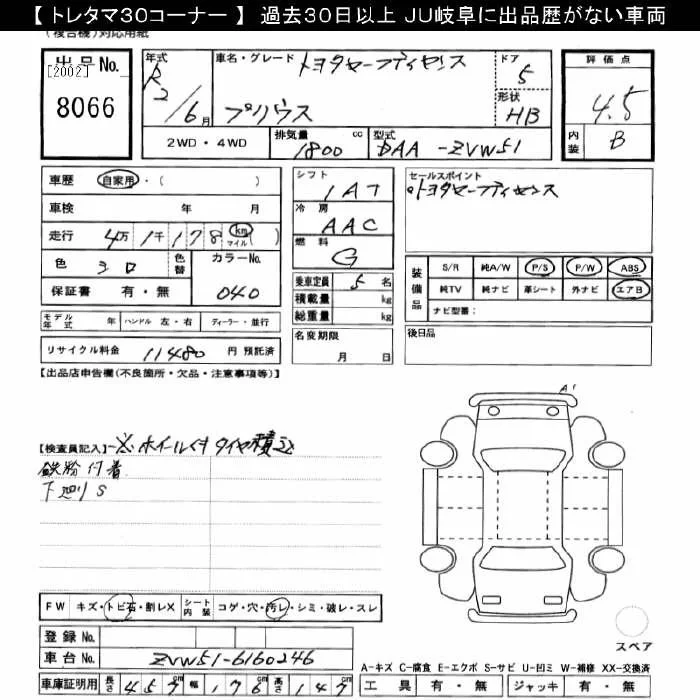 【 トレタマ30コーナー 】 過去30日以上 JU岐阜に出品歴がない車両
(複合機)対応用紙
出品No. [2002] 8066
年式 R2/6月
車名・グレード トヨタセーフティセンス
プリウス
ドア 5
形状 HB
評価点 4.5
内装 B
2WD・4WD 排気量 1800 cc 型式 DAA-ZVW51
車歴 自家用・( )
車検 年 月
走行 4万1千178 km マイル ( )
色 シロ 色替 カラーNo. 040
保証書 有・無
シフト 1AT
冷房 AAC
燃料 G
乗車定員 5 名
積載量 kg
総重量 kg
名変期限 月 日
セールスポイント
・トヨタセーフティセンス
装備品 S/R 純A/W P/S P/W ABS
純TV 純ナビ 革シート 外ナビ エアB
ナビ型番:
後日品
モデル年式 年 ハンドル 左・右 ディーラー・並行
リサイクル料金 11480 円 預託済
【出品店申告欄(不良箇所・欠品・注意事項等)】
A1
【検査員記入】 ※ホイール付タイヤ積込
鉄粉付着
下廻りS
FW キズ・トビ石・割レX シート内装 コゲ・穴・汚レ・シミ・破レ・スレ
登録No.
車台No. ZVW51-6160246
車庫証明用 長さ 457 幅 176 高さ 147
スペア
A-キズ C-腐食 E-エクボ S-サビ U-凹ミ W-補修 XX-交換済
工具 有・無 ジャッキ 有・無